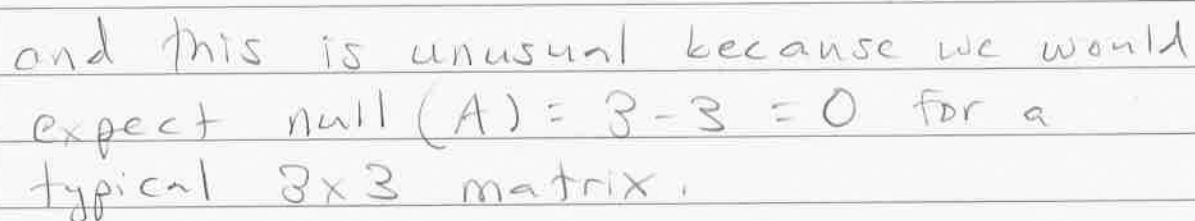 and this is unusual because we would
expect null (A) = 3 - 3 = 0 for a
typical 3x3 matrix.